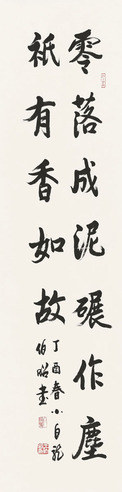 零落成泥碾作塵
祇有香如故
丁酉春小自龍
伯昭書